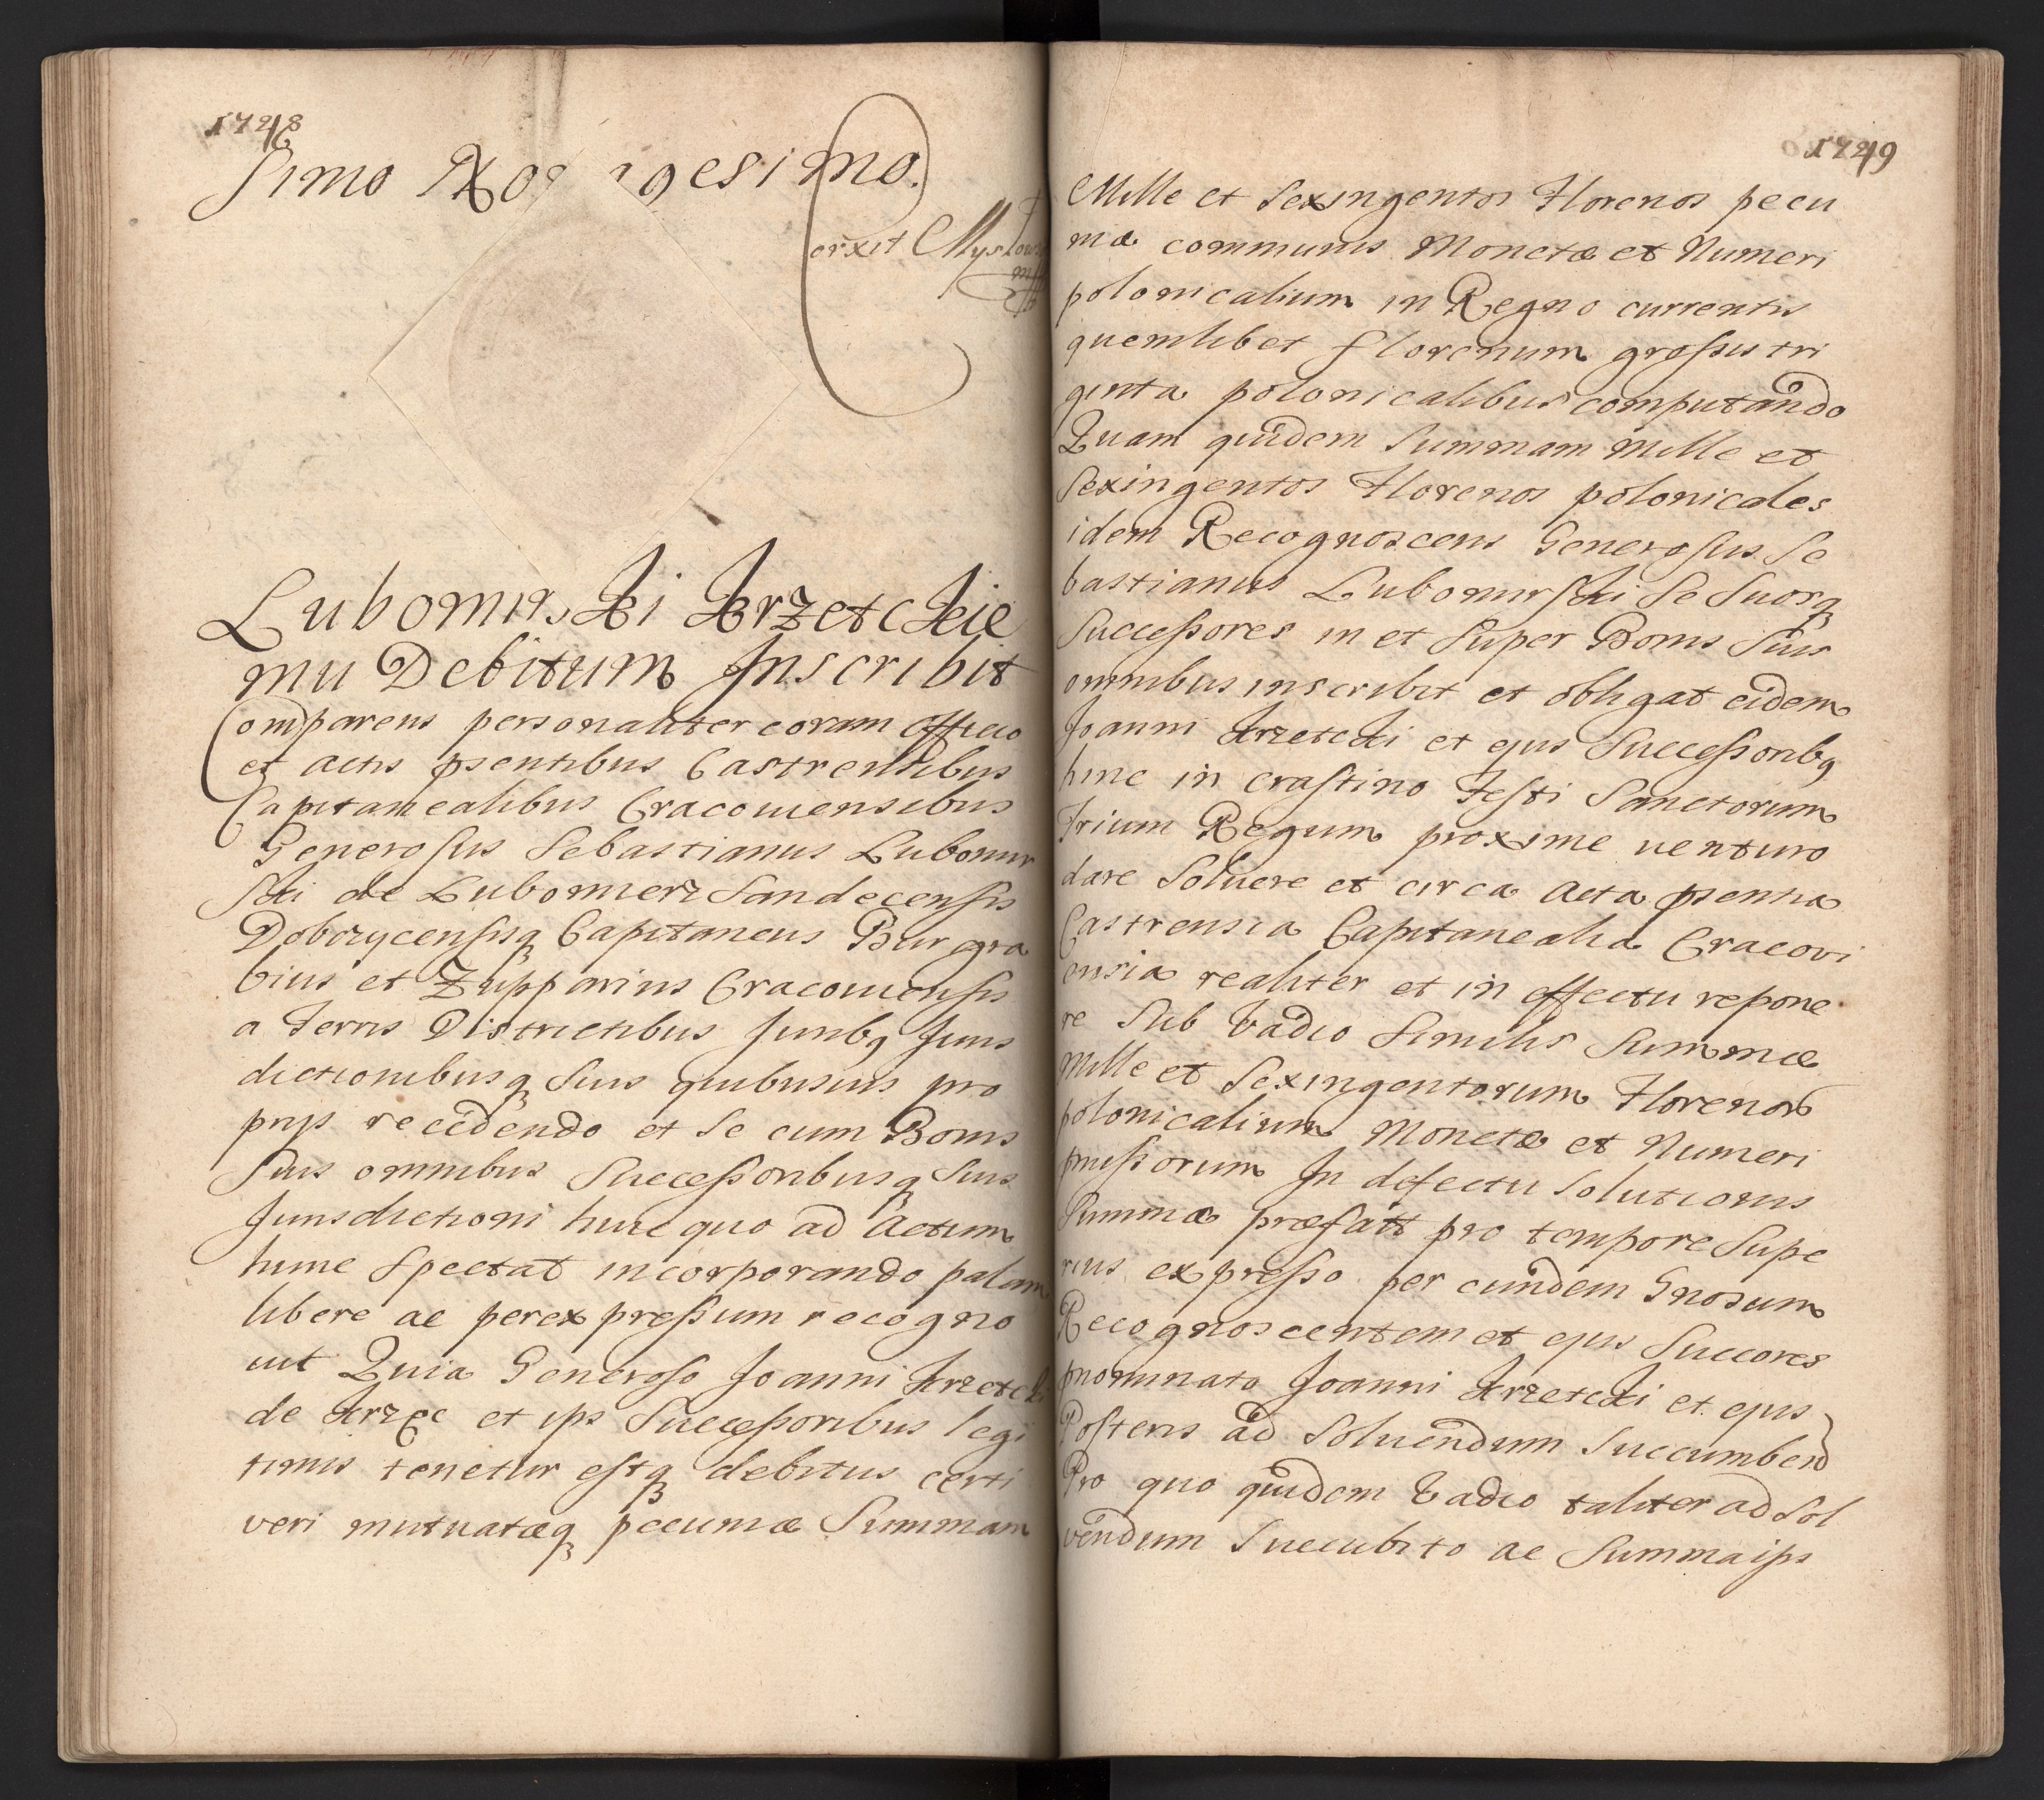 1748
simo No gesimo.
orxit Myslow
Lubomirski Krzetckie
mu Debitum Inscribit
Comparens personaliter coram officio
et actis psentibus Castrensibus
Capitanealibus Cracouiensibus
Generosus Sebastianus Lubomir
ski de Lubomierz Sandecensis
Dobczycensisq Capitaneus Burgra
bius et Zupparius Cracouiensis
a Terris Districtibus Juribq Juris
dictionibusq suis quibusuis pro
prijs recedendo et se cum Bonis
suis omnibus Successoribusq suis
Jurisdictioni huic quo ad actum
hunc spectat incorporando palam
libere ac per expressum recogno
uit Quia Generoso Joanni Krzetcki
de Krzęc et ips Successoribus legi
timis tenetur estq debitus certi
veri mutuatæq pecuniæ Summam
1749
Mille et Sexingentos Florenos pecu
niæ communis Monetæ et Numeri
polonicalium in Regno currentis
quemlibet florenum grossis tri
ginta polonicalibus computando
Quam quidem Summam Mille et
Sexingentos Florenos polonicales
idem Recognoscens Generosus Se
bastianus Lubomirski se suosq
Successores in et super Bonis suis
omnibus inscribit et obligat eidem
Joanni Krzetcki et ejus Successoribq
hinc in crastino Festi Sanctorum
Trium Regum proxime venturo
dare soluere et circa Acta psentia
Castrensia Capitanealia Cracovi
ensia realiter et in effectu repone
re sub vadio similis Summæ
Mille et Sexingentorum Florenor
polonicalium Monetæ et Numeri
pmissorum In defectu solutionis
Summæ præfatt pro tempore supe
rius expresso per eundem Gnosum
Recognoscentem et ejus Succores
pnominato Joanni Krzetcki et ejus
Posteris ad soluendum succumbend
Pro quo quidem vadio taliter ad sol
vendum succubito ac Summa ips